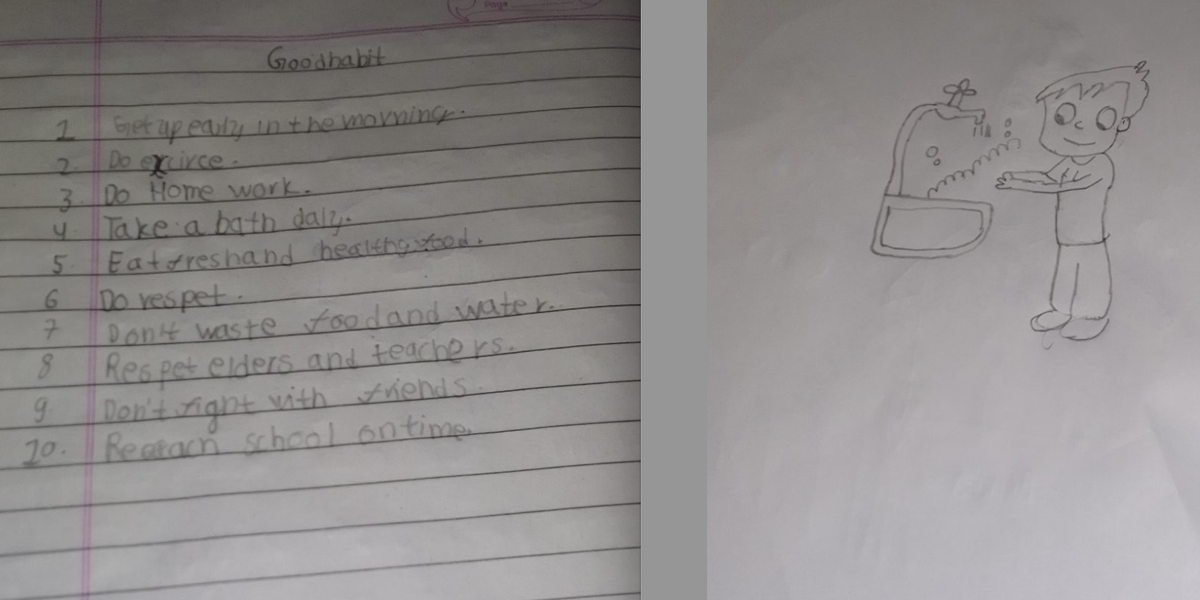 Page
Goodhabit
1 Get up early in the morning.
2. Do excirce.
3. Do Home work.
4 Take a bath daily.
5 Eat fresh and healthy food.
6 Do respet.
7 Don't waste food and water.
8 Respet elders and teachers.
9. Don't fight with friends.
10. Reeach school on time.